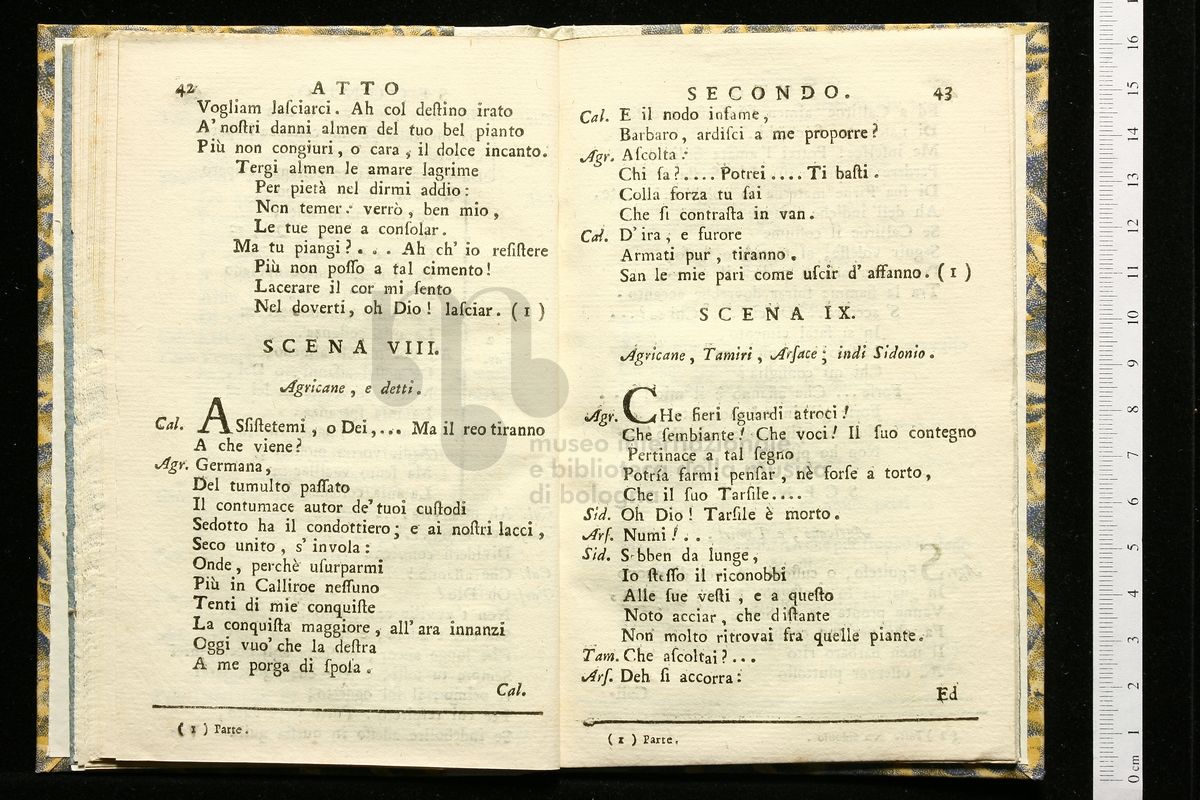 42 ATTO
Vogliam laſciarci. Ah col deſtino irato
A' noſtri danni almen del tuo bel pianto
Più non congiuri, o cara, il dolce incanto.
Tergi almen le amare lagrime
Per pietà nel dirmi addio:
Non temer: verrò, ben mio,
Le tue pene a conſolar.
Ma tu piangi?... Ah ch' io reſiſtere
Più non poſſo a tal cimento!
Lacerare il cor mi ſento
Nel doverti, oh Dio! laſciar. (1)
SCENA VIII.
Agricane, e detti.
Cal. ASſiſtetemi, o Dei,... Ma il reo tiranno
A che viene?
Agr. Germana,
Del tumulto paſſato
Il contumace autor de' tuoi cuſtodi
Sedotto ha il condottiero; e ai noſtri lacci,
Seco unito, s' invola:
Onde, perchè uſurparmi
Più in Calliroe neſſuno
Tenti di mie conquiſte
La conquiſta maggiore, all' ara innanzi
Oggi vuo' che la deſtra
A me porga di ſpoſa.
Cal.
(1) Parte.
SECONDO. 43
Cal. E il nodo infame,
Barbaro, ardiſci a me proporre?
Agr. Aſcolta:
Chi ſa?.... Potrei.... Ti baſti.
Colla forza tu ſai
Che ſi contraſta in van.
Cal. D' ira, e furore
Armati pur, tiranno.
San le mie pari come uſcir d' affanno. (1)
SCENA IX.
Agricane, Tamiri, Arſace; indi Sidonio.
Agr. CHe fieri ſguardi atroci!
Che ſembiante! Che voci! Il ſuo contegno
Pertinace a tal ſegno
Potria farmi penſar, nè forſe a torto,
Che il ſuo Tarſile....
Sid. Oh Dio! Tarſile è morto.
Arſ. Numi!..
Sid. Sebben da lunge,
Io ſteſſo il riconobbi
Alle ſue veſti, e a queſto
Noto acciar, che diſtante
Non molto ritrovai fra quelle piante.
Tam. Che aſcoltai?...
Arſ. Deh ſi accorra:
Ed
(1) Parte.
museo internazionale
e biblioteca della musica
di bologna
0 cm 1 2 3 4 5 6 7 8 9 10 11 12 13 14 15 16